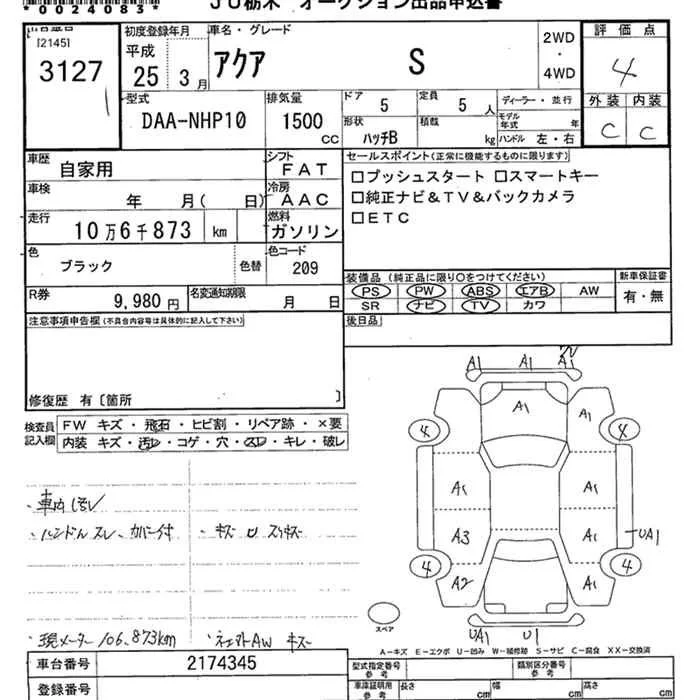 *0024083*
JU栃木 オークション出品申込書
[2145]
3127
初度登録年月
平成
25 3月
車名・グレード
アクア S
2WD
・
4WD
評価点
4
外装 内装
C C
型式
DAA-NHP10
排気量
1500
CC
ドア 5
定員 5人
ディーラー・並行
モデル年式 年
形状 ハッチB
積載 kg
ハンドル 左・右
車歴 自家用
シフト FAT
車検 年 月( 日)
冷房 AAC
走行 10万6千873 km
燃料 ガソリン
色 ブラック 色替
色コード 209
R券 9,980円
名変通知期限 月 日
セールスポイント(正常に機能するものに限ります)
□プッシュスタート □スマートキー
□純正ナビ&TV&バックカメラ
□ETC
装備品(純正品に限り○をつけてください)
PS PW ABS エアB AW
SR ナビ TV カワ
新車保証書
有・無
後日品
注意事項申告欄(不具合内容等は具体的に記入して下さい)
修復歴 有〔箇所 〕
検査員記入欄
FW キズ・飛石・ヒビ割・リペア跡・×要
内装 キズ・汚レ・コゲ・穴・スレ・キレ・破レ
・車内汚レ
・ハンドルスレ、カバー付
・キズ U スリキズ
・現メーター 106,873km
A1 A1
A1 A1
4 4
A1 A1
A3 A1 UA1
4 4
A2 A1
スペア
UA1 U1
A-キズ E-エクボ U-凹み W-補修跡 S-サビ C-腐食 XX-交換済
車台番号 2174345
登録番号
型式指定番号
参考
類別区分番号
参考
車庫証明用
参考
長さ cm
幅 cm
高さ cm